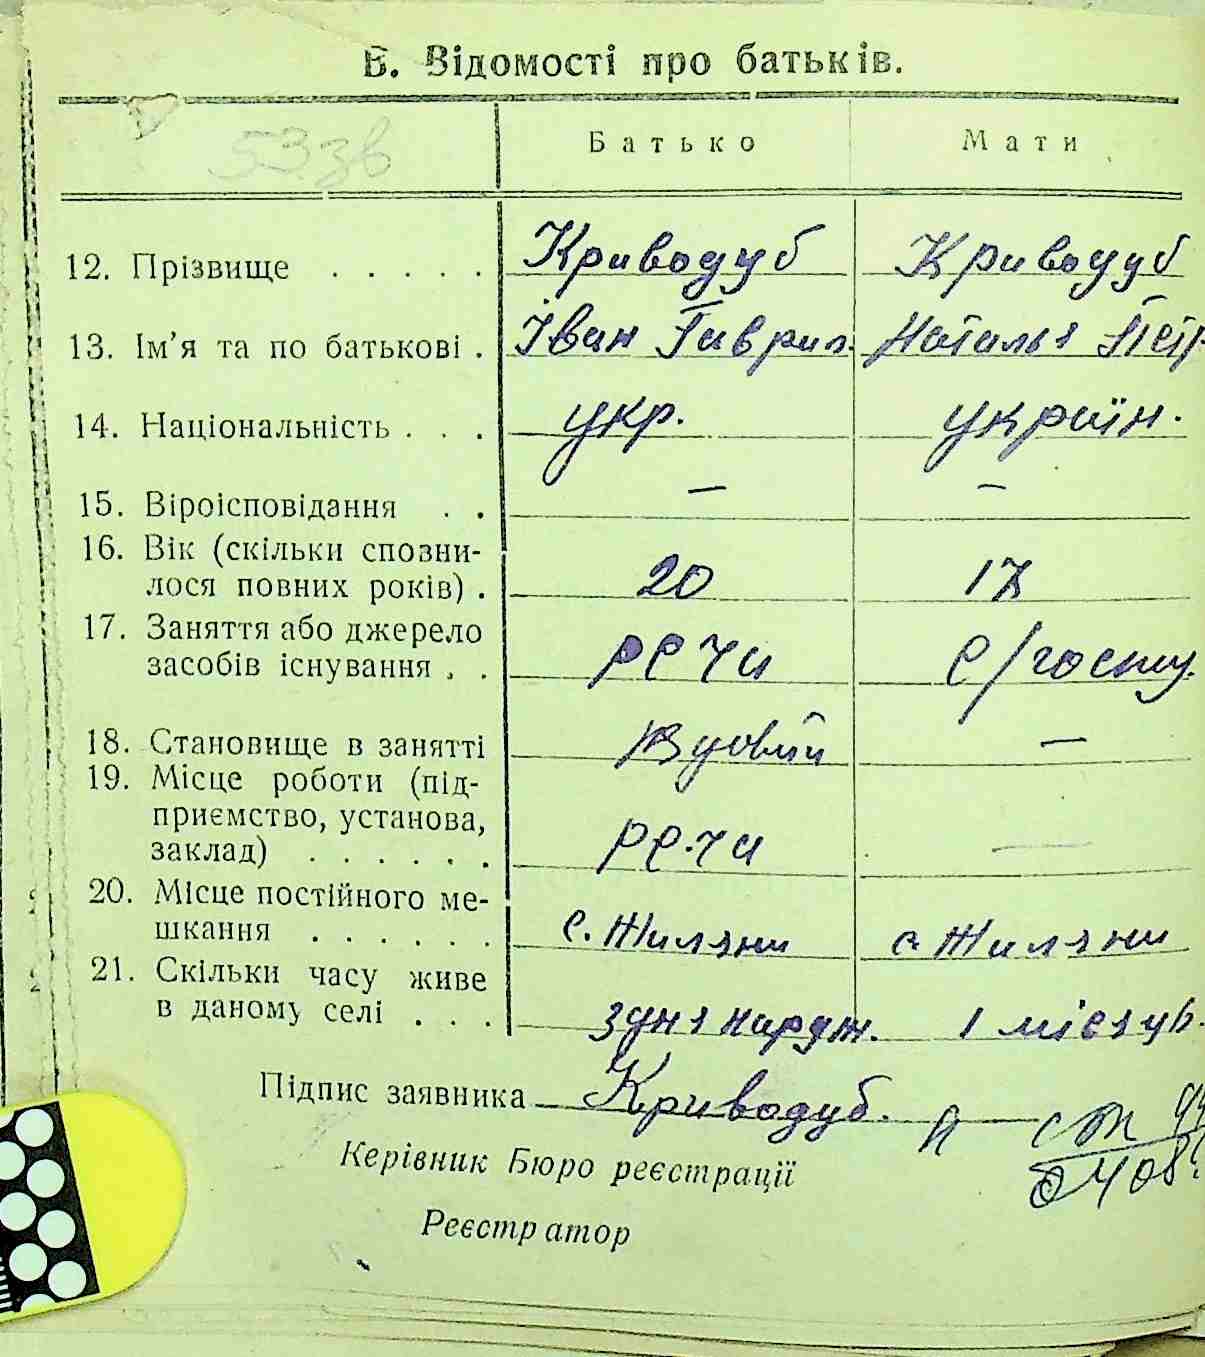 В. Відомості про батьків.
53зв
Батько Мати
12. Прізвище . . . . . Криводуб Криводуб
13. Ім'я та по батькові . Іван Гаврил. Наталья Петр
14. Національність . . . укр. україн.
15. Віроісповідання . . — —
16. Вік (скільки спозни-
лося повних років) . 20 17
17. Заняття або джерело
засобів існування . . с/госпу.
18. Становище в занятті —
19. Місце роботи (під-
приємство, установа,
заклад) . . . . . . —
20. Місце постійного ме-
шкання . . . . . . с. Жиляни с. Жиляни
21. Скільки часу живе
в даному селі . . . здня народж. 1 місяць.
Підпис заявника Криводуб.
Керівник Бюро реєстрації
Реєстратор